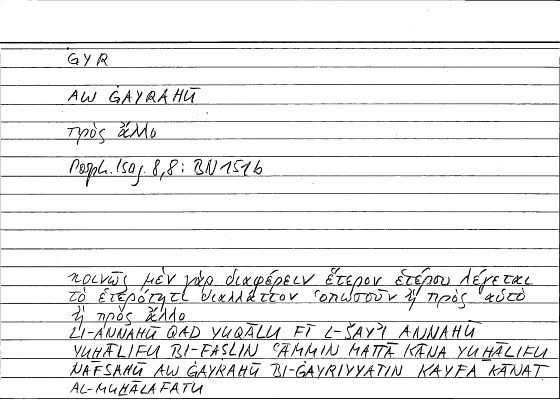 ĠYR
AW ĠAYRAHŪ
πρὸς ἄλλο
Porph. Isag. 8,8 : BN 151b
κοινῶς μὲν γὰρ διαφέρειν ἕτερον ἑτέρου λέγεται
τὸ ἑτερότητι διαλλάττον ὁπωσοῦν ἢ πρὸς αὑτὸ
ἢ πρὸς ἄλλο
LI-ANNAHŪ QAD YUQĀLU FĪ L-ŠAYʾI ANNAHŪ
YUḪĀLIFU BI-FAṢLIN ʿĀMMIN MATĀ KĀNA YUḪĀLIFU
NAFSAHŪ AW ĠAYRAHŪ BI-ĠAYRIYYATIN KAYFA KĀNAT
AL-MUḪĀLAFATU